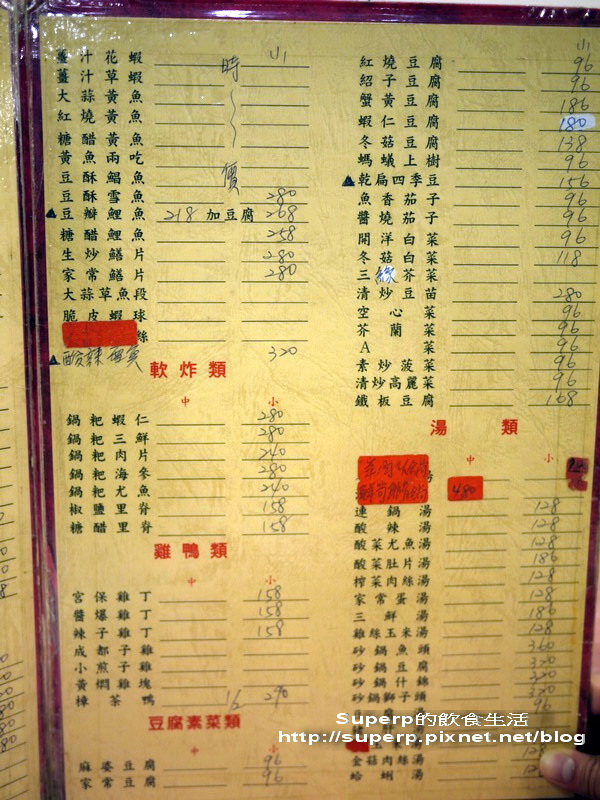 小
薑汁花蝦 時
薑汁草蝦
大蒜黃魚
紅燒黃魚
糖醋黃魚
黃魚兩吃 價
豆酥鯧魚
豆酥雪魚 280
豆瓣鯉魚 218 加豆腐 268
糖醋鯉魚 258
生炒鱔片 280
家常鱔片 280
大蒜草魚段
脆皮蝦球
絲
320
軟炸類
中 小
鍋粑蝦仁 280
鍋粑三鮮 280
鍋粑肉片 240
鍋粑海參 280
鍋粑尤魚 240
椒鹽里脊 158
糖醋里脊 158
雞鴨類
中 小
宮保雞丁 158
醬爆雞丁 158
辣子雞丁 158
成都子雞
小煎子雞
黃燜雞塊
樟茶鴨 1/2 290
豆腐素菜類
中 小
麻婆豆腐 96
家常豆腐 96
小
紅燒豆腐 96
紹子豆腐 96
蟹黃豆腐 186
蝦仁豆腐 180
冬菇豆腐 138
螞蟻上樹 96
乾扁四季豆 156
魚香茄子 96
醬燒茄子 96
開洋白菜 96
冬菇白菜 118
三絲芥菜
清炒豆苗 280
空心菜 96
芥蘭菜 96
A菜 96
素炒菠菜 96
清炒高麗菜 96
鐵板豆腐 168
湯類
中 小
480
連鍋湯 128
酸辣湯 128
酸菜尤魚湯 128
酸菜肚片湯 186
榨菜肉絲湯 128
家常蛋湯 128
三鮮湯 180
雞絲玉米湯 128
砂鍋魚頭 360
砂鍋豆腐 320
砂鍋什錦 320
砂鍋獅子頭 320
96
Superp的飲食生活
http://superp.pixnet.net/blog
金菇肉絲湯 128
蛤蜊湯